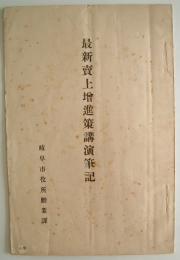 最新賣上增進策講演筆記
岐阜市役所勸業課